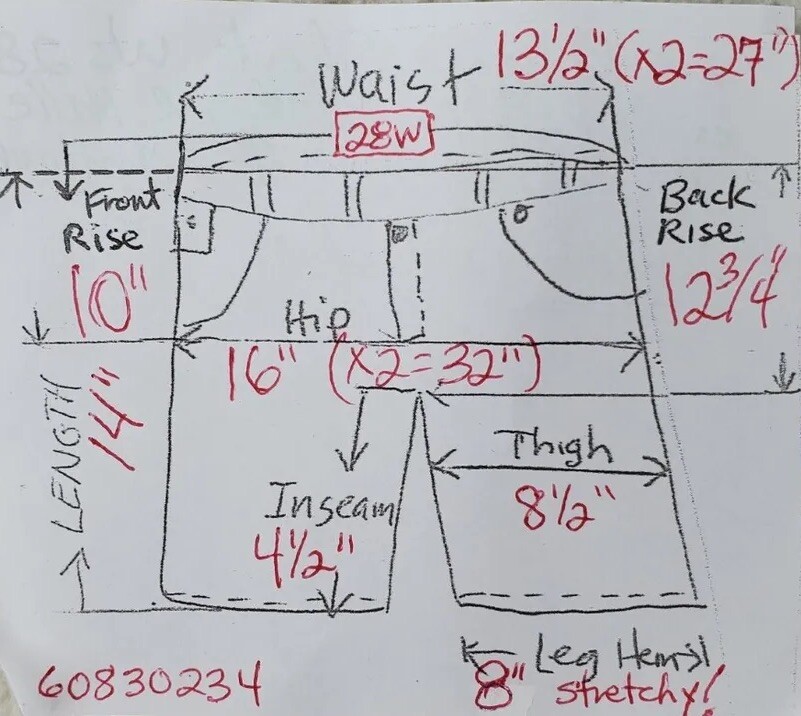 Waist 13½" (x2=27")
28W
Front
Rise
10"
Back
Rise
12¾"
Hip
16" (x2=32")
LENGTH
14"
Thigh
8½"
Inseam
4½"
Leg Hem
8" stretchy!
60830234